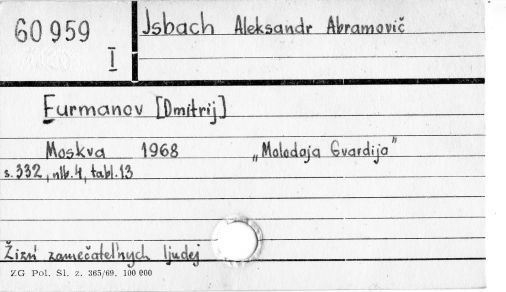 60959
I
Isbach Aleksandr Abramovič
Furmanov [Dmitrij]
Moskva 1968 „Mołodaja Gvardija”
s. 332, nlb. 4, tabl. 13
Žizń zamečatel'nych ljudej
ZG Pol. Śl. z. 365/69. 100 000